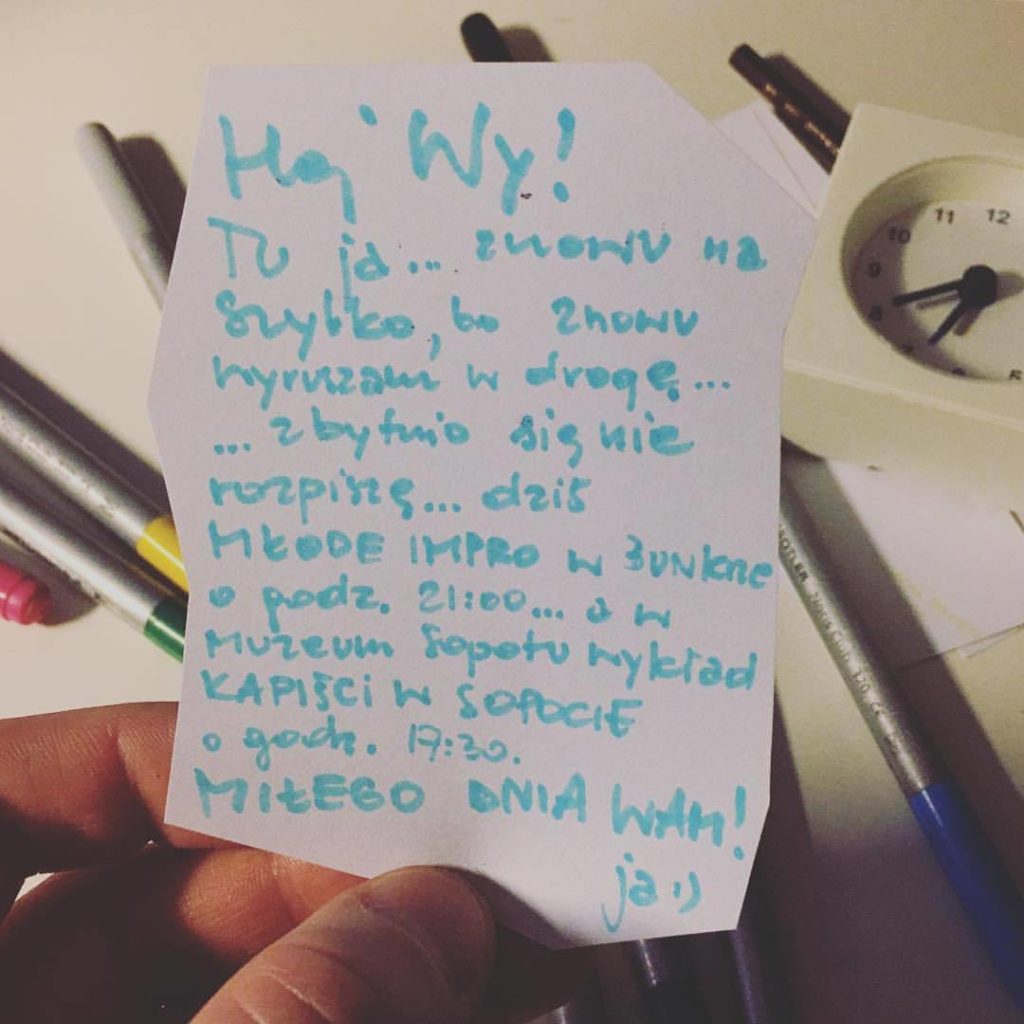 Hej Wy!
Tu ja... znowu na
szybko, bo znowu
wyruszam w drogę...
... zbytnio się nie
rozpiszę... dziś
MŁODE IMPRO w BUNKRZE
o godz. 21:00... a w
Muzeum Sopotu wykład
KAPIŚCI W SOPOCIE
o godz. 17:30.
MIŁEGO DNIA WAM!
ja :)
10 11 12
9
8
7 6 5